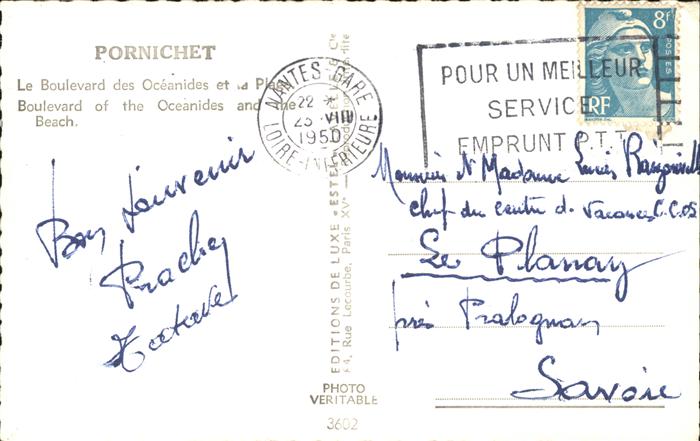 PORNICHET
Le Boulevard des Océanides et la Plage
Boulevard of the Oceanides and the
Beach.
NANTES-GARE
22
23 VIII
1950
LOIRE-INFÉRIEURE
POUR UN MEILLEUR
SERVICE
EMPRUNT P.T.T.
8F
POSTES
RF
Bon Souvenir
Monsieur et Madame Lucien
chef du centre de vacances C.C.O.S
Le Planay
près Pralognan
Savoie
EDITIONS DE LUXE «ESTEL»
64, Rue Lecourbe, Paris XVe
PHOTO
VERITABLE
3602